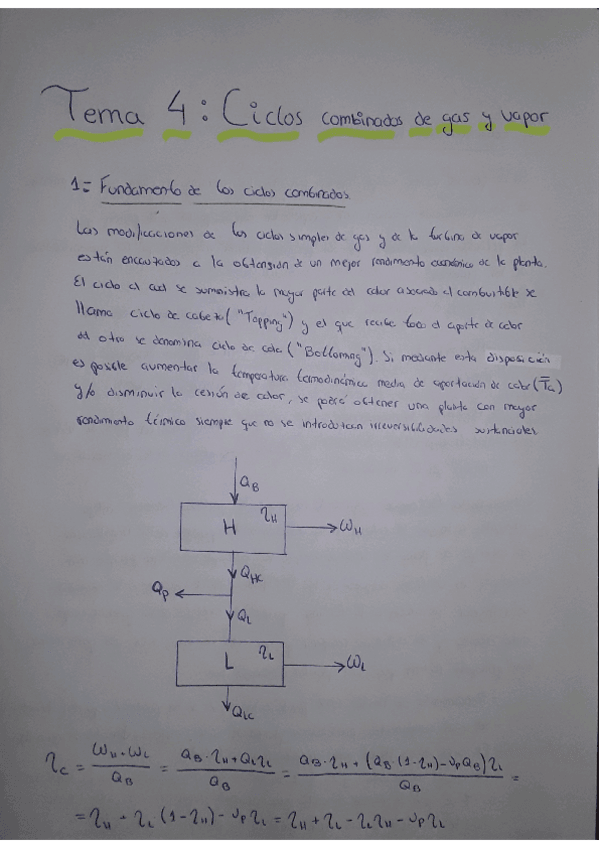 Tema 4: Ciclos combinados de gas y vapor
1= Fundamento de los ciclos combinados
Las modificaciones de los ciclos simples de gas y de la turbina de vapor
están encauzados a la obtensión de un mejor rendimiento económico de la planta.
El ciclo al cual se suministra la mayor parte del calor asociado al combustible se
llama ciclo de cabeza ("Topping") y el que recibe todo el aporte de calor
del otro se denomina ciclo de cola ("Bottoming"). Si mediante esta disposición
es posible aumentar la temperatura termodinámica media de aportación de calor (T̄a)
y/o disminuir la cesión de calor, se podrá obtener una planta con mayor
rendimiento térmico siempre que no se introduzcan irreversibilidades sustanciales
Q_B
H η_H
ω_H
Q_HC
Q_P
Q_L
L η_L
ω_L
Q_LC
η_C = (ω_H + ω_L) / Q_B = (Q_B · η_H + Q_L η_L) / Q_B = (Q_B · η_H + (Q_B · (1 - η_H) - υ_P Q_B) η_L) / Q_B =
= η_H + η_L (1 - η_H) - υ_P η_L = η_H + η_L - η_L η_H - υ_P η_L